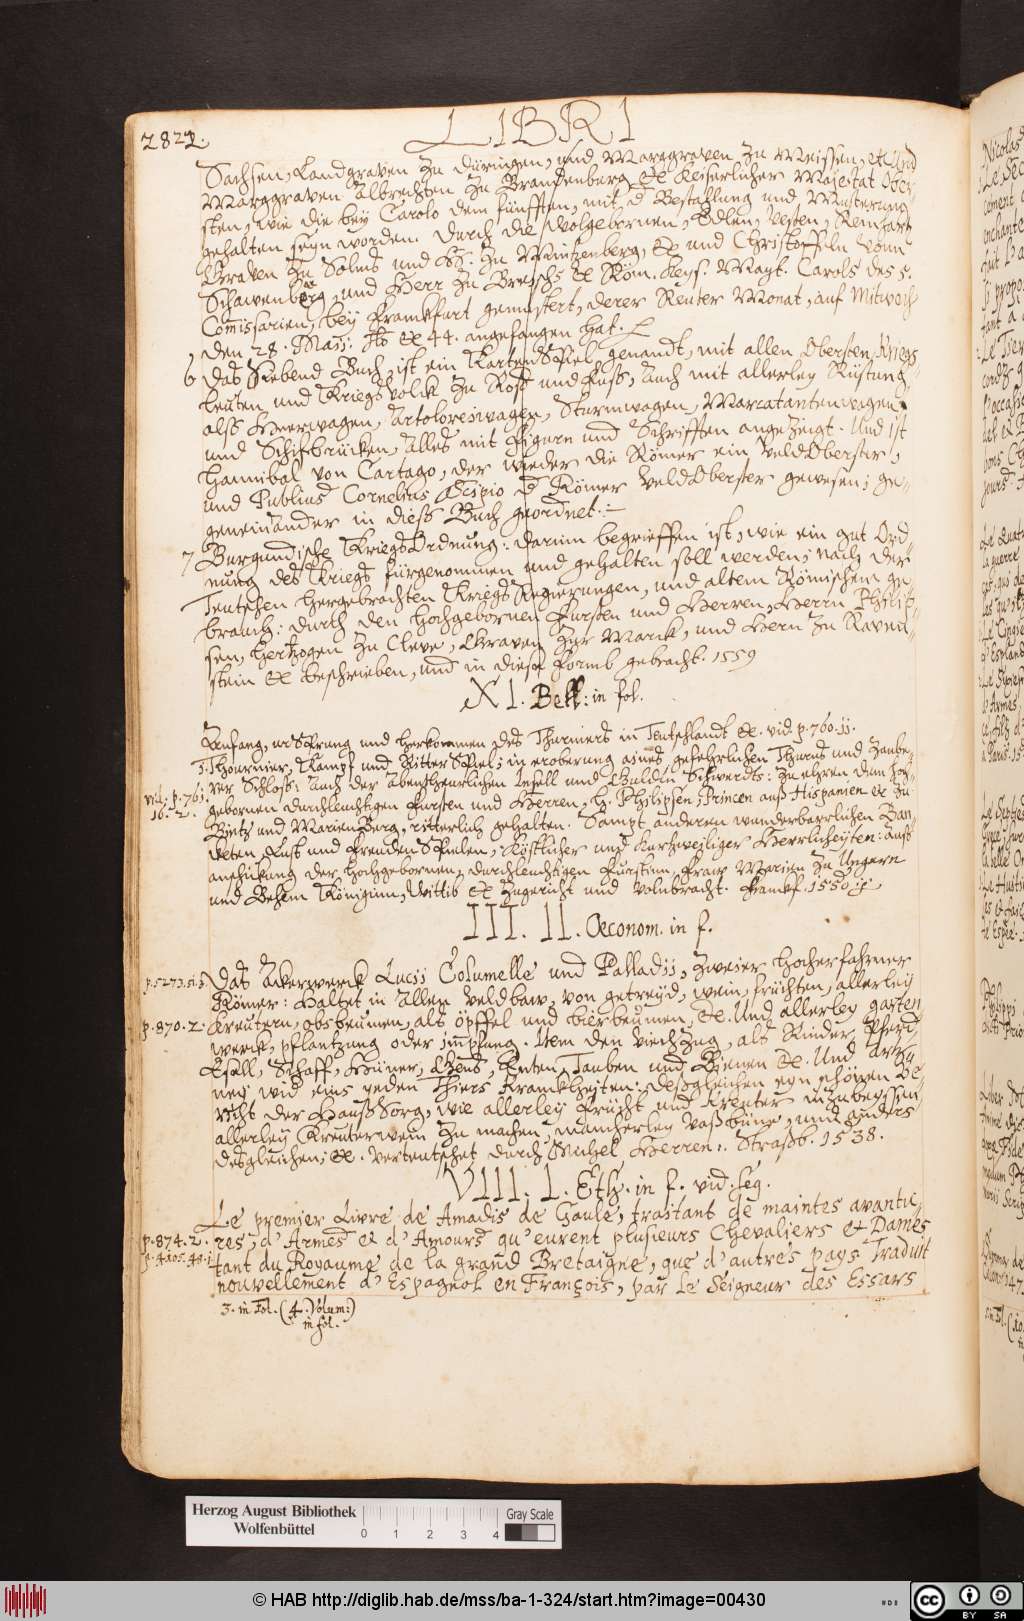 2822.
LIBRI
Sachsen, Landgraven zu Düringen, und Marggraven zu Meissen, und
Marggraven Albrechten zu Brandenburg etc Keiserlicher Majestat Ober-
sten, wie die bey Carolo dem fünfften, mit d Bestallung und Musterung
gehalten seyn worden. durch die Wolgebornen, Edlen, Vesten, Reinhart
Graven zu Solms und H. zu Müntzenberg, etc und Christoffeln vonn
Schawenberg, und Herr zu etc Röm. Keys. Mayt. Carols des 5.
Comissarien, bey Franckfurt gemustert, derer Reuter Monat, auf Mitwoch
den 28. Maij: Ao etc 44. angefangen hat.
6 das Siebend Buch, ist ein KartenSpiel, genandt, mit allen Obersten, Kriegs
leuten und Kriegsvolck zu Ross und Fuss, Auch mit allerley Rüstung
alss Heerwagen, Artolereiwagen, Sturmwagen, Marcatantenwagen
und Schifbrücken, Alles mit Figurn und Schrifften angezeigt. Und ist
Hannibal von Cartago, der wieder die Römer ein VeldOberster,
und Publius Cornelius Scipio d Römer VeldOberster gewesen; ge-
geneinander in diess Buch geordnet.
7 Burgundische KriegsOrdnung: darinn begrieffen ist, wie ein gut Ord-
nung des Kriegs fürgenommen und gehalten soll werden; nach der
Teutschen hergebrachten KriegsRegierungen, und altem Römischem ge-
brauch: durch den Hochgebornen Fürsten und Herren, Herrn Philip-
sen, Hertzogen zu Cleve, Graven zur Marck, und Hern zu Raven-
stein etc beschrieben, und in diese Formb gebracht. 1559
XI. Bell: in fol.
Anfang, urSprung und herkommen des Thurniers in Teutschlandt etc. vid. p. 760. 11.
1. Thournier, Kampf und Ritter Spiel; in eroberung aines gefehrlichen Thurns und Zaube-
vid. p. 761.
16. 2.
rer Schloss: Auch der Abentheurlichen Insell und Guldin Schwerdts: zu ehren dem hoch-
gebornen durchleuchtigen Fursten und Herren, H. Philipsen, Princen auss Hispanien etc zu
Bintz und MarienBerg, ritterlich gehalten. Sampt anderen wunderbarrlichen Ban-
cketen, Lust und Freuden Spielen, Kostlicher und Kurtzweiliger Herrlicheyten: auss
anschikung der hochgebornen, durchleuchtigen Fürstinn, Fraw Marien zu Ungern
und Behem Königinn, Wittib etc zugericht und volnbracht. Franckf. 1550
III. II. Oeconom. in f.
p. 5273.
Das Ackerwerck Lucij Columelle und Palladij, zweier hocherfahrner
Römer: Haltet in Allen Veldbaw, von getreyd, wein, früchten, allerley
p. 870. 2.
Kreutern, obsbeumen, als öpffel und birbeumen, etc. Und allerley garten
werck, pflantzung oder impfung. Item den viechzug, als Rinder, Pferd,
Esell, Schaff, Hüner, Gens, Enten, Tauben und Bienen etc. Und Artz-
ney wid eins yeden Thiers Kranckheyten: dessgleichen eyn schönen be-
richt der Haussorg, wie allerley frücht und Kreuter inzubeyssen,
allerley Kreuterwein zu machen, mancherley Vassbüne, und anders
dessgleichen; etc. verteutschet durch Michel Herren: Strassb. 1538.
VIII. 1. Eth. in f. vid. seq.
Le premier Livre de Amadis de Gaule, traitant de maintes avantu-
p. 874. 2.
res, d'Armes et d'Amours qu'eurent plusieurs Chevaliers et Dames
tant du Royaume de la grand Bretaigne, que d'autres pays Traduit
nouvellement d'Espagnol en François, par Le Seigneur des Essars
3. in Fol. (4. Volum:)
in fol.
Herzog August Bibliothek
Wolfenbüttel
0 1 2 3 4
Gray Scale
© HAB http://diglib.hab.de/mss/ba-1-324/start.htm?image=00430
cc BY SA